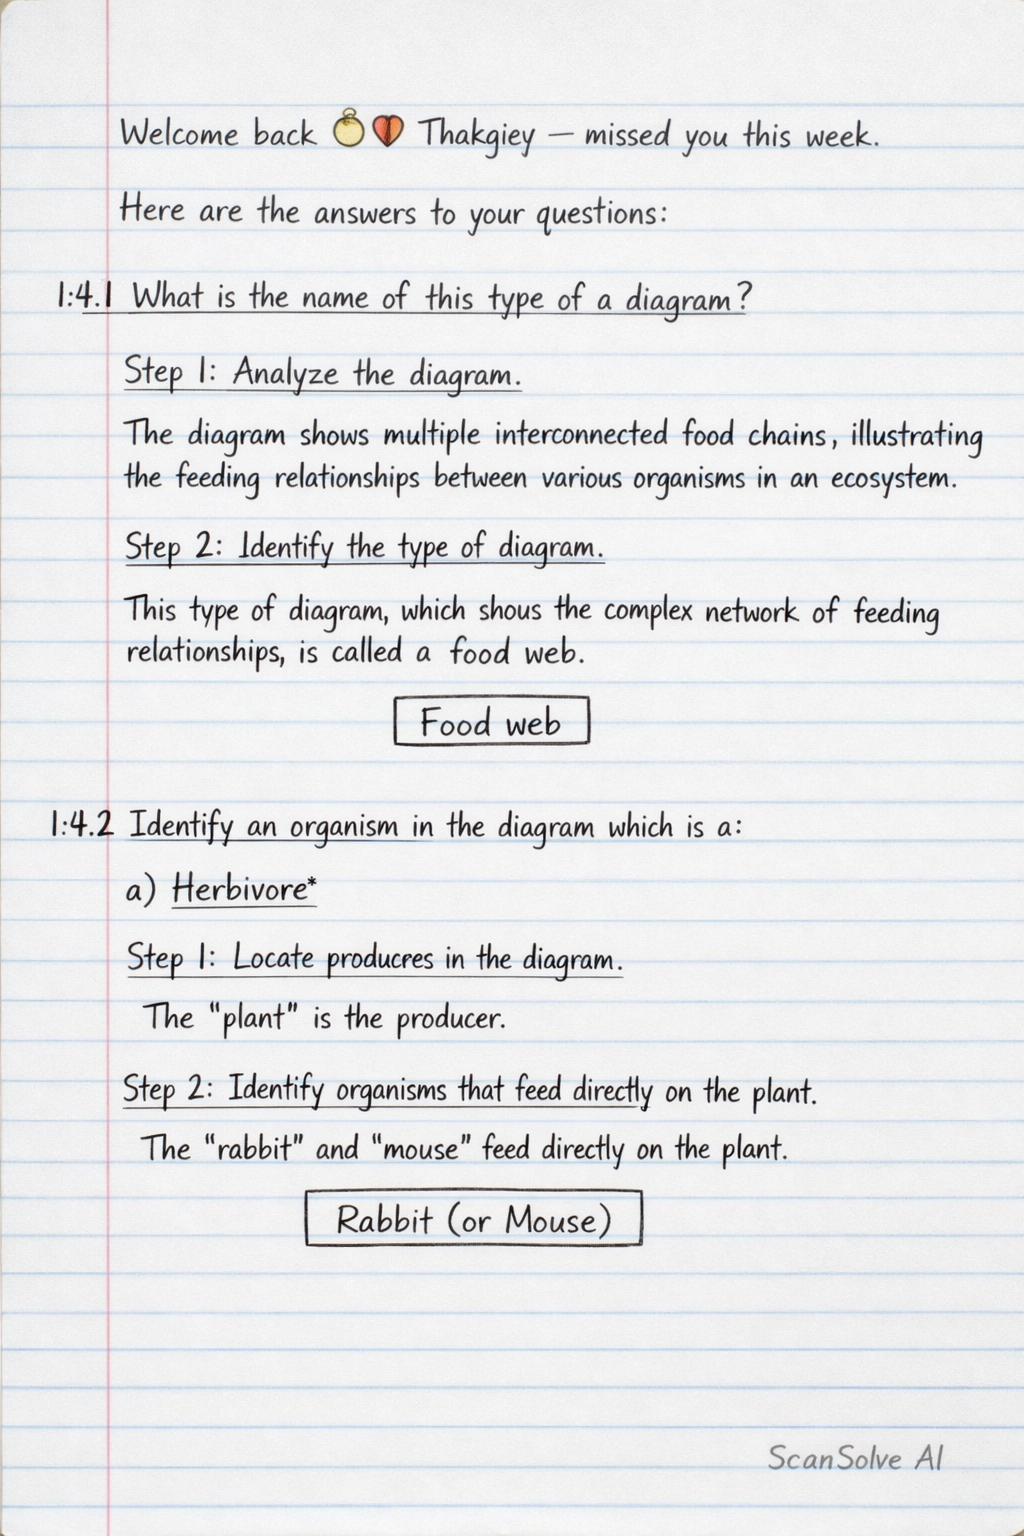 Welcome back Thakgiey — missed you this week.
Here are the answers to your questions:
1:4.1 What is the name of this type of a diagram?
Step 1: Analyze the diagram.
The diagram shows multiple interconnected food chains, illustrating
the feeding relationships between various organisms in an ecosystem.
Step 2: Identify the type of diagram.
This type of diagram, which shous the complex network of feeding
relationships, is called a food web.
Food web
1:4.2 Identify an organism in the diagram which is a:
a) Herbivore*
Step 1: Locate producres in the diagram.
The "plant" is the producer.
Step 2: Identify organisms that feed directly on the plant.
The "rabbit" and "mouse" feed directly on the plant.
Rabbit (or Mouse)
ScanSolve AI